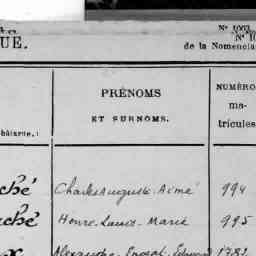 Nº 1003
UE.
de la Nomencla
PRÉNOMS
ET SURNOMS.
NUMÉRO
ma-
tricules
bâtarue.
ché Charles Auguste Aimé 994
ché Henri Louis Marie 995
Alexandre 1781